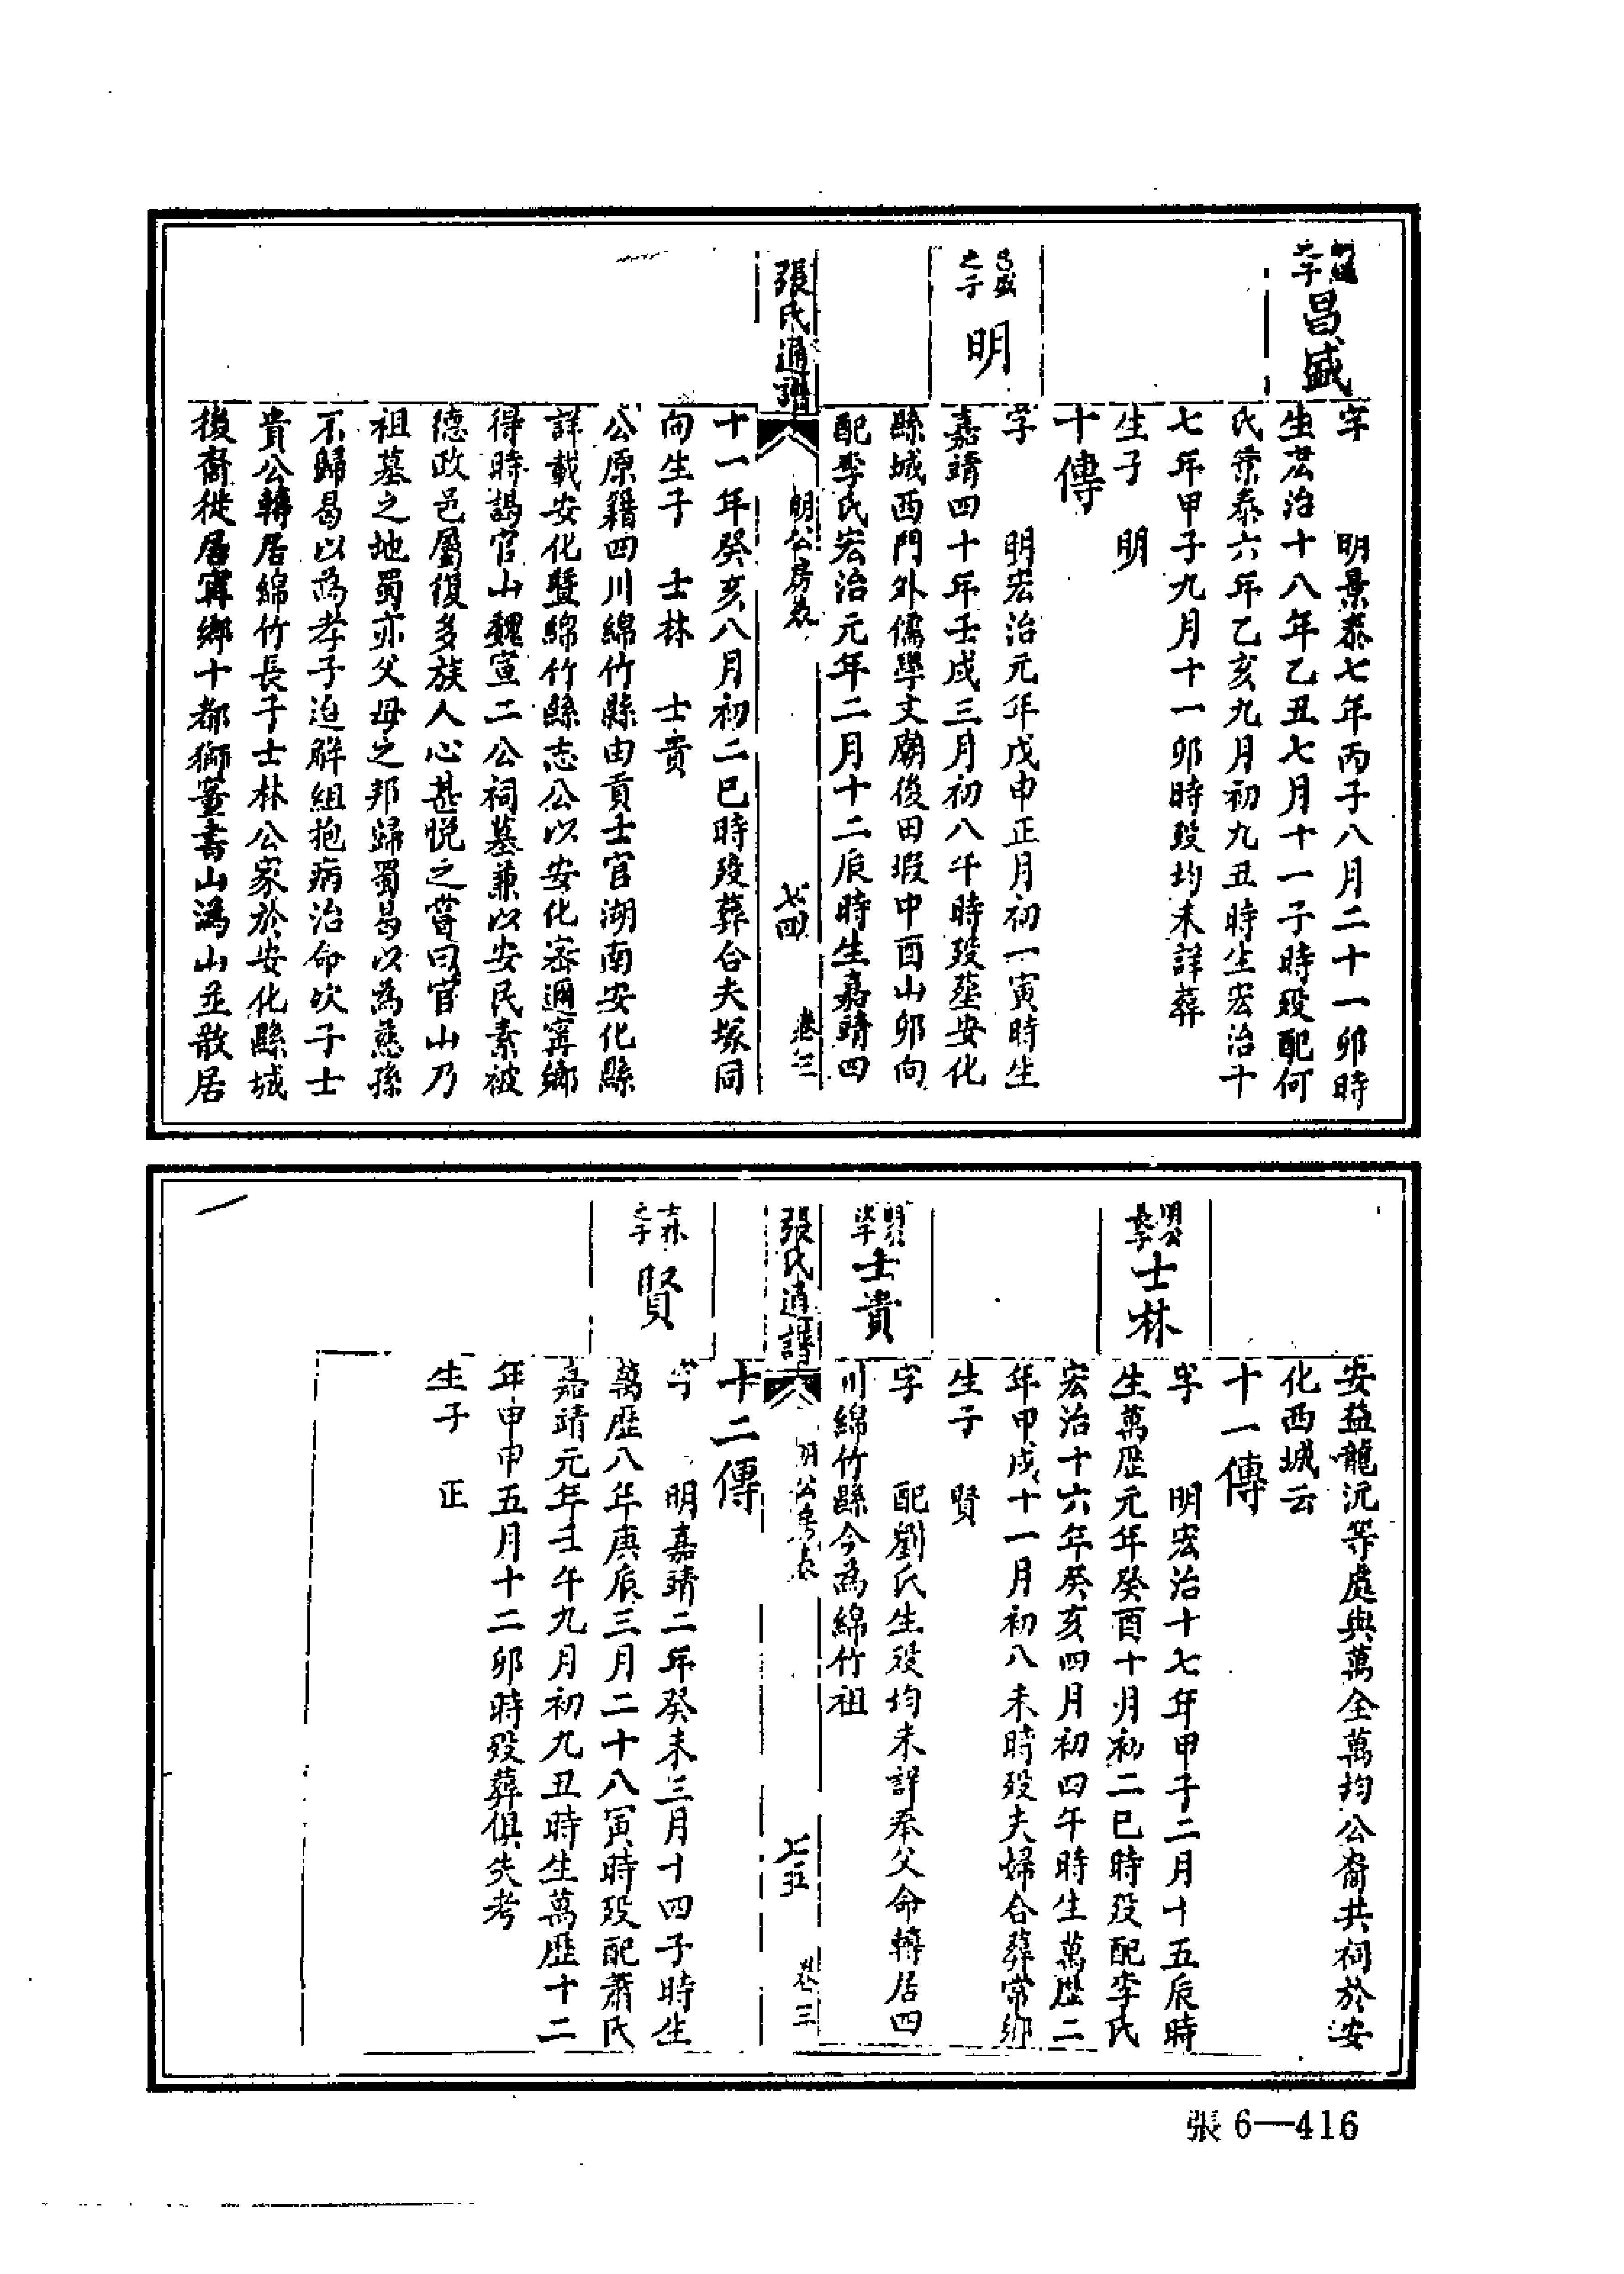 之子
昌盛
字　明景泰七年丙子八月二十一卯時
生宏治十八年乙丑七月十一子時歿配何
氏景泰六年乙亥九月初九丑時生宏治十
七年甲子九月十一卯時歿均未詳葬
生子　明
十傳
昌盛之子
明
字　明宏治元年戊申正月初一寅時生
嘉靖四十年壬戌三月初八午時歿塟安化
縣城西門外儒學文廟後田瑕中酉山卯向
配李氏宏治元年二月十二辰時生嘉靖四
張氏通譜
明公房表
七四
卷三
十一年癸亥八月初二巳時歿葬合夫塚同
向生子　士林　士貴
公原籍四川綿竹縣由貢士官湖南安化縣
詳載安化暨綿竹縣志公以安化密邇寗鄉
得時謁官山魏宣二公祠墓兼以安民素被
德政邑屬復多族人心甚悅之嘗曰官山乃
祖墓之地蜀亦父母之邦歸蜀曷以為慈孫
不歸曷以為孝子迨解組抱病治命次子士
貴公轉居綿竹長子士林公家於安化縣城
後裔徙居寗鄉十都獅臺書山溈山並散居
安益龍沅等處與萬全萬均公裔共祠於安
化西城云
十一傳
明公長子
士林
字　明宏治十七年甲子二月十五辰時
生萬歷元年癸酉十月初二巳時歿配李氏
宏治十六年癸亥四月初四午時生萬歷二
年甲戌十一月初八未時歿夫婦合葬常鄉
生子　賢
明公次子
士貴
字　配劉氏生歿均未詳奉父命轉居四
川綿竹縣今為綿竹祖
張氏通譜
明公房表
七五
卷三
十二傳
士林之子
賢
字　明嘉靖二年癸未三月十四子時生
萬歷八年庚辰三月二十八寅時歿配蕭氏
嘉靖元年壬午九月初九丑時生萬歷十二
年甲申五月十二卯時歿葬俱失考
生子　正
張6—416